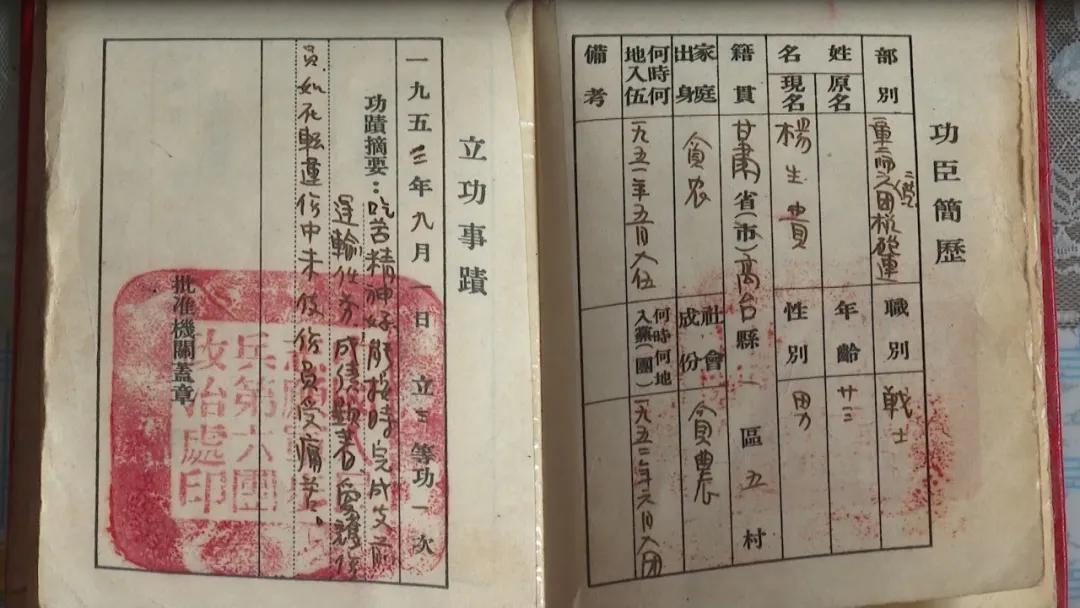 功臣簡歷
部別 一軍二師六团二營機砲連 職別 戰士
姓名 原名 年齡 廿三
現名 楊生貴 性別 男
籍貫 甘肅省(市)高台縣一區五村
家庭出身 貧农 社會成份 貧農
何時何地入伍 一九五一年五月入伍 何時何地入黨(團) 一九五二年六月入团
備考
立功事蹟
一九五三年九月一日立三等功一次
功蹟摘要：吃苦精神好能按時完成支前
運輸任务成績顯著愛護伤
員如在転運伤中未使伤員受痛苦。
批准機關蓋章
兵第六團
政治處印